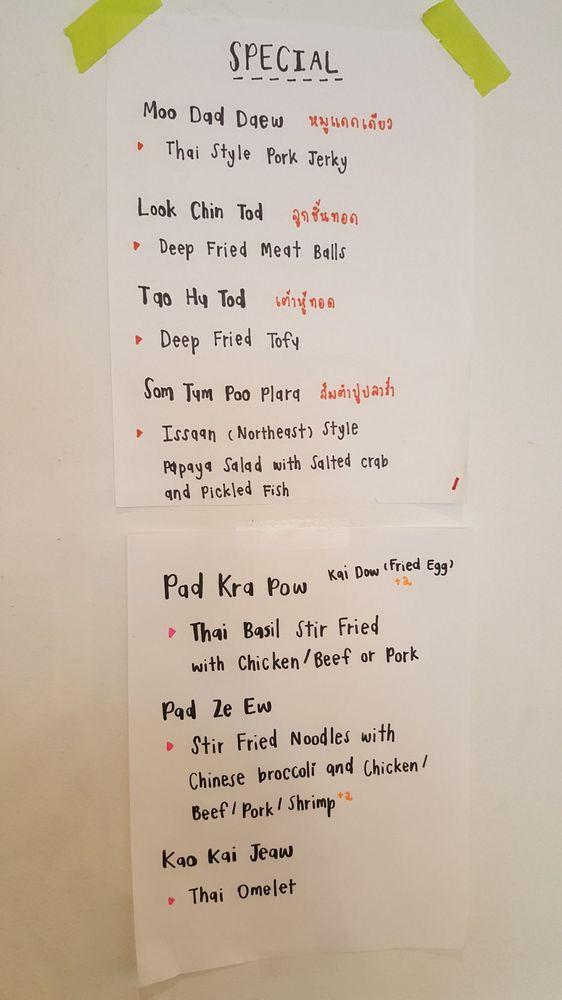 SPECIAL
Moo Dad Daew หมูแดดเดียว
Thai Style Pork Jerky
Look Chin Tod ลูกชิ้นทอด
Deep Fried Meat Balls
Tao Hu Tod เต้าหู้ทอด
Deep Fried Tofu
Som Tum Poo Plara ส้มตำปูปลาร้า
Issaan (Northeast) Style
Papaya Salad with Salted crab
and Pickled Fish
Pad Kra Pow Kai Dow (Fried Egg)
+2
Thai Basil Stir Fried
with Chicken/Beef or Pork
Pad Ze Ew
Stir Fried Noodles with
Chinese broccoli and Chicken/
Beef/Pork/Shrimp +2
Kao Kai Jeaw
Thai Omelet